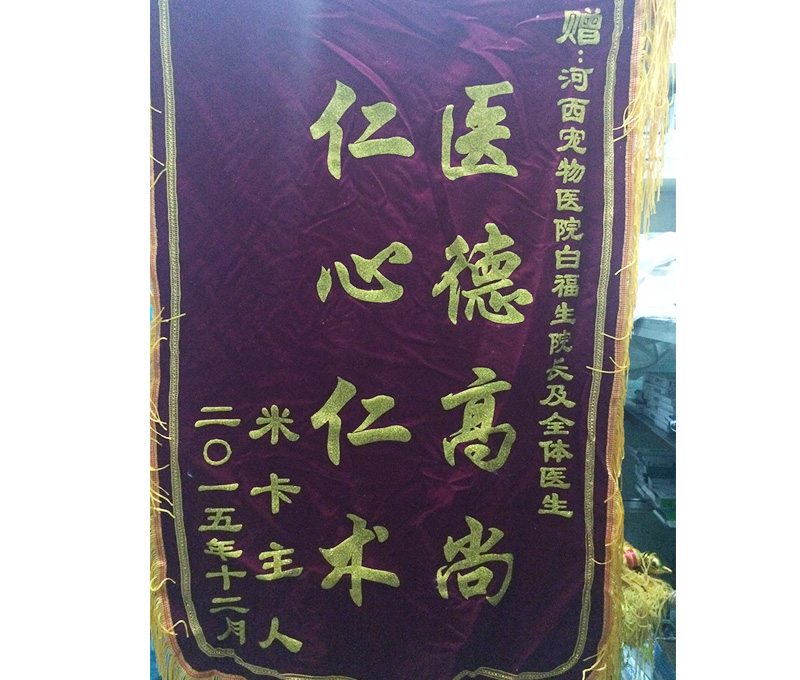 赠:河西宠物医院白福生院长及全体医生
医德高尚
仁心仁术
米卡主人
二〇一五年十二月